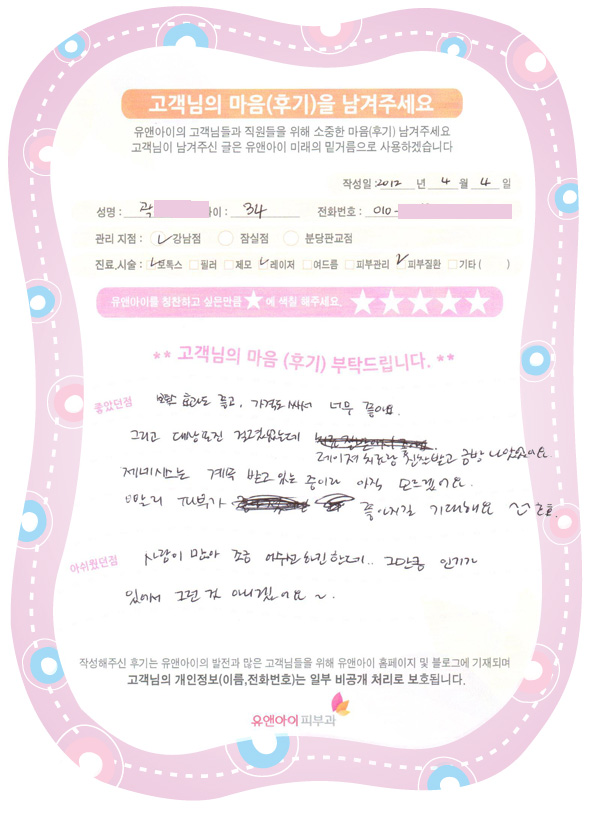 고객님의 마음(후기)을 남겨주세요
유앤아이의 고객님들과 직원들을 위해 소중한 마음(후기) 남겨주세요
고객님이 남겨주신 글은 유앤아이 미래의 밑거름으로 사용하겠습니다
작성일 2012 년 4 월 4 일
성명 : 곽 이 : 34 전화번호 : 010-
관리 지점 : 강남점 잠실점 분당판교점
진료,시술 : 보톡스 필러 제모 레이저 여드름 피부관리 피부질환 기타 ( )
유앤아이를 칭찬하고 싶은만큼 ★ 에 색칠 해주세요. ★★★★★
** 고객님의 마음 (후기) 부탁드립니다. **
좋았던점 보톡스 효과도 좋고, 가격도 싸서 너무 좋아요.
그리고 대상포진 걸렸었는데
레이저 치료랑 처방받고 금방 나았어요.
제네시스는 계속 받고 있는 중이라 아직 모르겠어요.
빨리 피부가 좋아지길 기대해요 ^^
아쉬웠던점 사람이 많아 조금 어수선하긴 한데.. 그만큼 인기가
있어서 그런 것 아니겠어요 ~.
작성해주신 후기는 유앤아이의 발전과 많은 고객님들을 위해 유앤아이 홈페이지 및 블로그에 기재되며
고객님의 개인정보(이름,전화번호)는 일부 비공개 처리로 보호됩니다.
유앤아이피부과